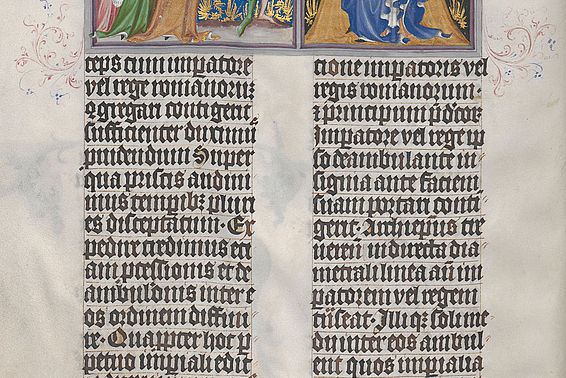 ceps cum impatore
vel rege romanorum
ↄgregari contigerit
sufficienter duximus
puidendum Super
qua priscis audiui
mus temporibz pluri
es disceptatum · Ex
pedire credimus eci
am pcessionis et de
ambulacōnis inter e
os ordinem diffini
re · Quapropter hoc p
petuo imperiali edic
cione impatoris vel
regis romanorum ·
et principum pdcōr
Impatore vel rege ip
so deambulante in
signia ante faciem
suam portari conti
gerit · Archiepus tre
uereñ in directa dia
metrali linea añ im
patorem vel regem
transeat · Illiqz soli me
dii inter eos ambul
ent quos imperialia